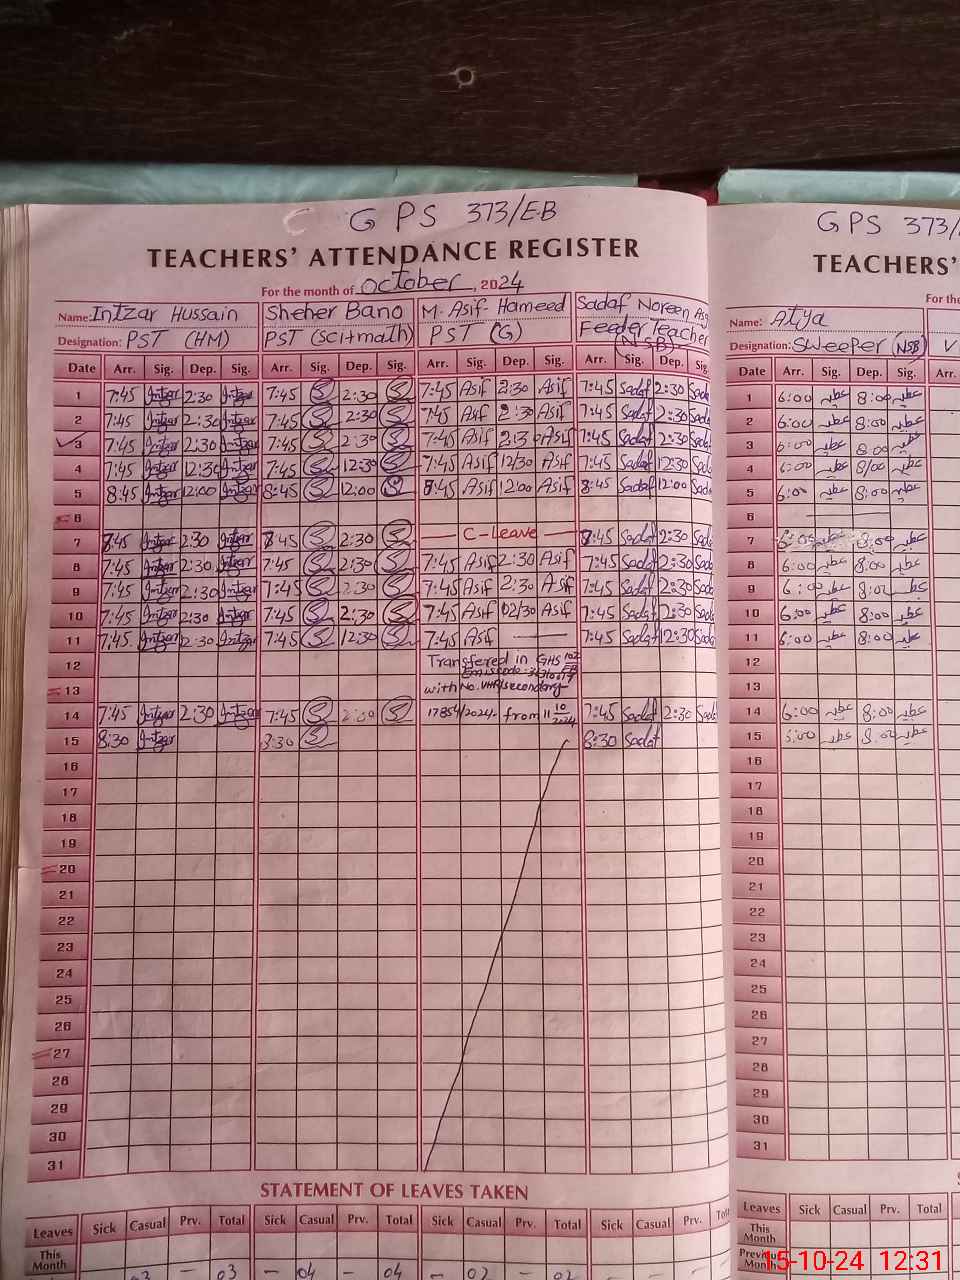 GPS 373/EB
TEACHERS' ATTENDANCE REGISTER
For the month of October, 2024
Name: Intzar Hussain Sheher Bano M. Asif Hameed Sadaf Noreen
Designation: PST (HM) PST (Sci+math) PST (G) Feeder Teacher (NSB)
Date Arr. Sig. Dep. Sig. Arr. Sig. Dep. Sig. Arr. Sig. Dep. Sig. Arr. Sig. Dep. Sig.
1 7:45 Intzar 2:30 Intzar 7:45 S 2:30 S 7:45 Asif 2:30 Asif 7:45 Sadaf 2:30
2 7:45 Intzar 2:30 Intzar 7:45 S 2:30 S 7:45 Asif 2:30 Asif 7:45 Sadaf 2:30
3 7:45 Intzar 2:30 Intzar 7:45 S 2:30 S 7:45 Asif 2:30 Asif 7:45 Sadaf 2:30
4 7:45 Intzar 12:30 Intzar 7:45 S 12:30 S 7:45 Asif 12/30 Asif 7:45 Sadaf 12:30
5 8:45 Intzar 12:00 Intzar 8:45 S 12:00 S 8:45 Asif 12:00 Asif 8:45 Sadaf 12:00
6
7 7:45 Intzar 2:30 Intzar 7:45 S 2:30 S C-Leave 7:45 Sadaf 2:30
8 7:45 Intzar 2:30 Intzar 7:45 S 2:30 S 7:45 Asif 2:30 Asif 7:45 Sadaf 2:30
9 7:45 Intzar 2:30 Intzar 7:45 S 2:30 S 7:45 Asif 2:30 Asif 7:45 Sadaf 2:30
10 7:45 Intzar 2:30 Intzar 7:45 S 2:30 S 7:45 Asif 02/30 Asif 7:45 Sadaf 2:30
11 7:45 Intzar 12:30 Intzar 7:45 S 12:30 S 7:45 Asif 7:45 Sadaf 12:30
12 Transfered in GHS 102/EB
Emiscode
13 with No. secondary
14 7:45 Intzar 2:30 Intzar 7:45 S S 17854/2024. from 11 10/2024 7:45 Sadaf 2:30
15 8:30 Intzar 8:30 S 8:30 Sadaf
16
17
18
19
20
21
22
23
24
25
26
27
28
29
30
31
STATEMENT OF LEAVES TAKEN
Leaves Sick Casual Prv. Total Sick Casual Prv. Total Sick Casual Prv. Total Sick Casual Prv.
This Month
03 – 03 – 04 – 04 – 02 – 02
GPS 373/
TEACHERS'
For the
Name: Atiya
Designation: Sweeper (NSB)
Date Arr. Sig. Dep. Sig. Arr.
1 6:00 8:00
2 6:00 8:00
3 6:00 8:00
4 6:00 8/00
5 6:00 8:00
6
7 6:00 8:00
8 6:00 8:00
9 6:00 8:00
10 6:00 8:00
11 6:00 8:00
12
13
14 6:00 8:00
15 8:00
16
17
18
19
20
21
22
23
24
25
26
27
28
29
30
31
Leaves Sick Casual Prv. Total
This Month
Previous Month
15-10-24 12:31